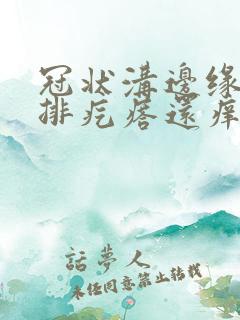 冠状溝邊缘
排疙瘩還痒
話夢人
未经同意禁止转载